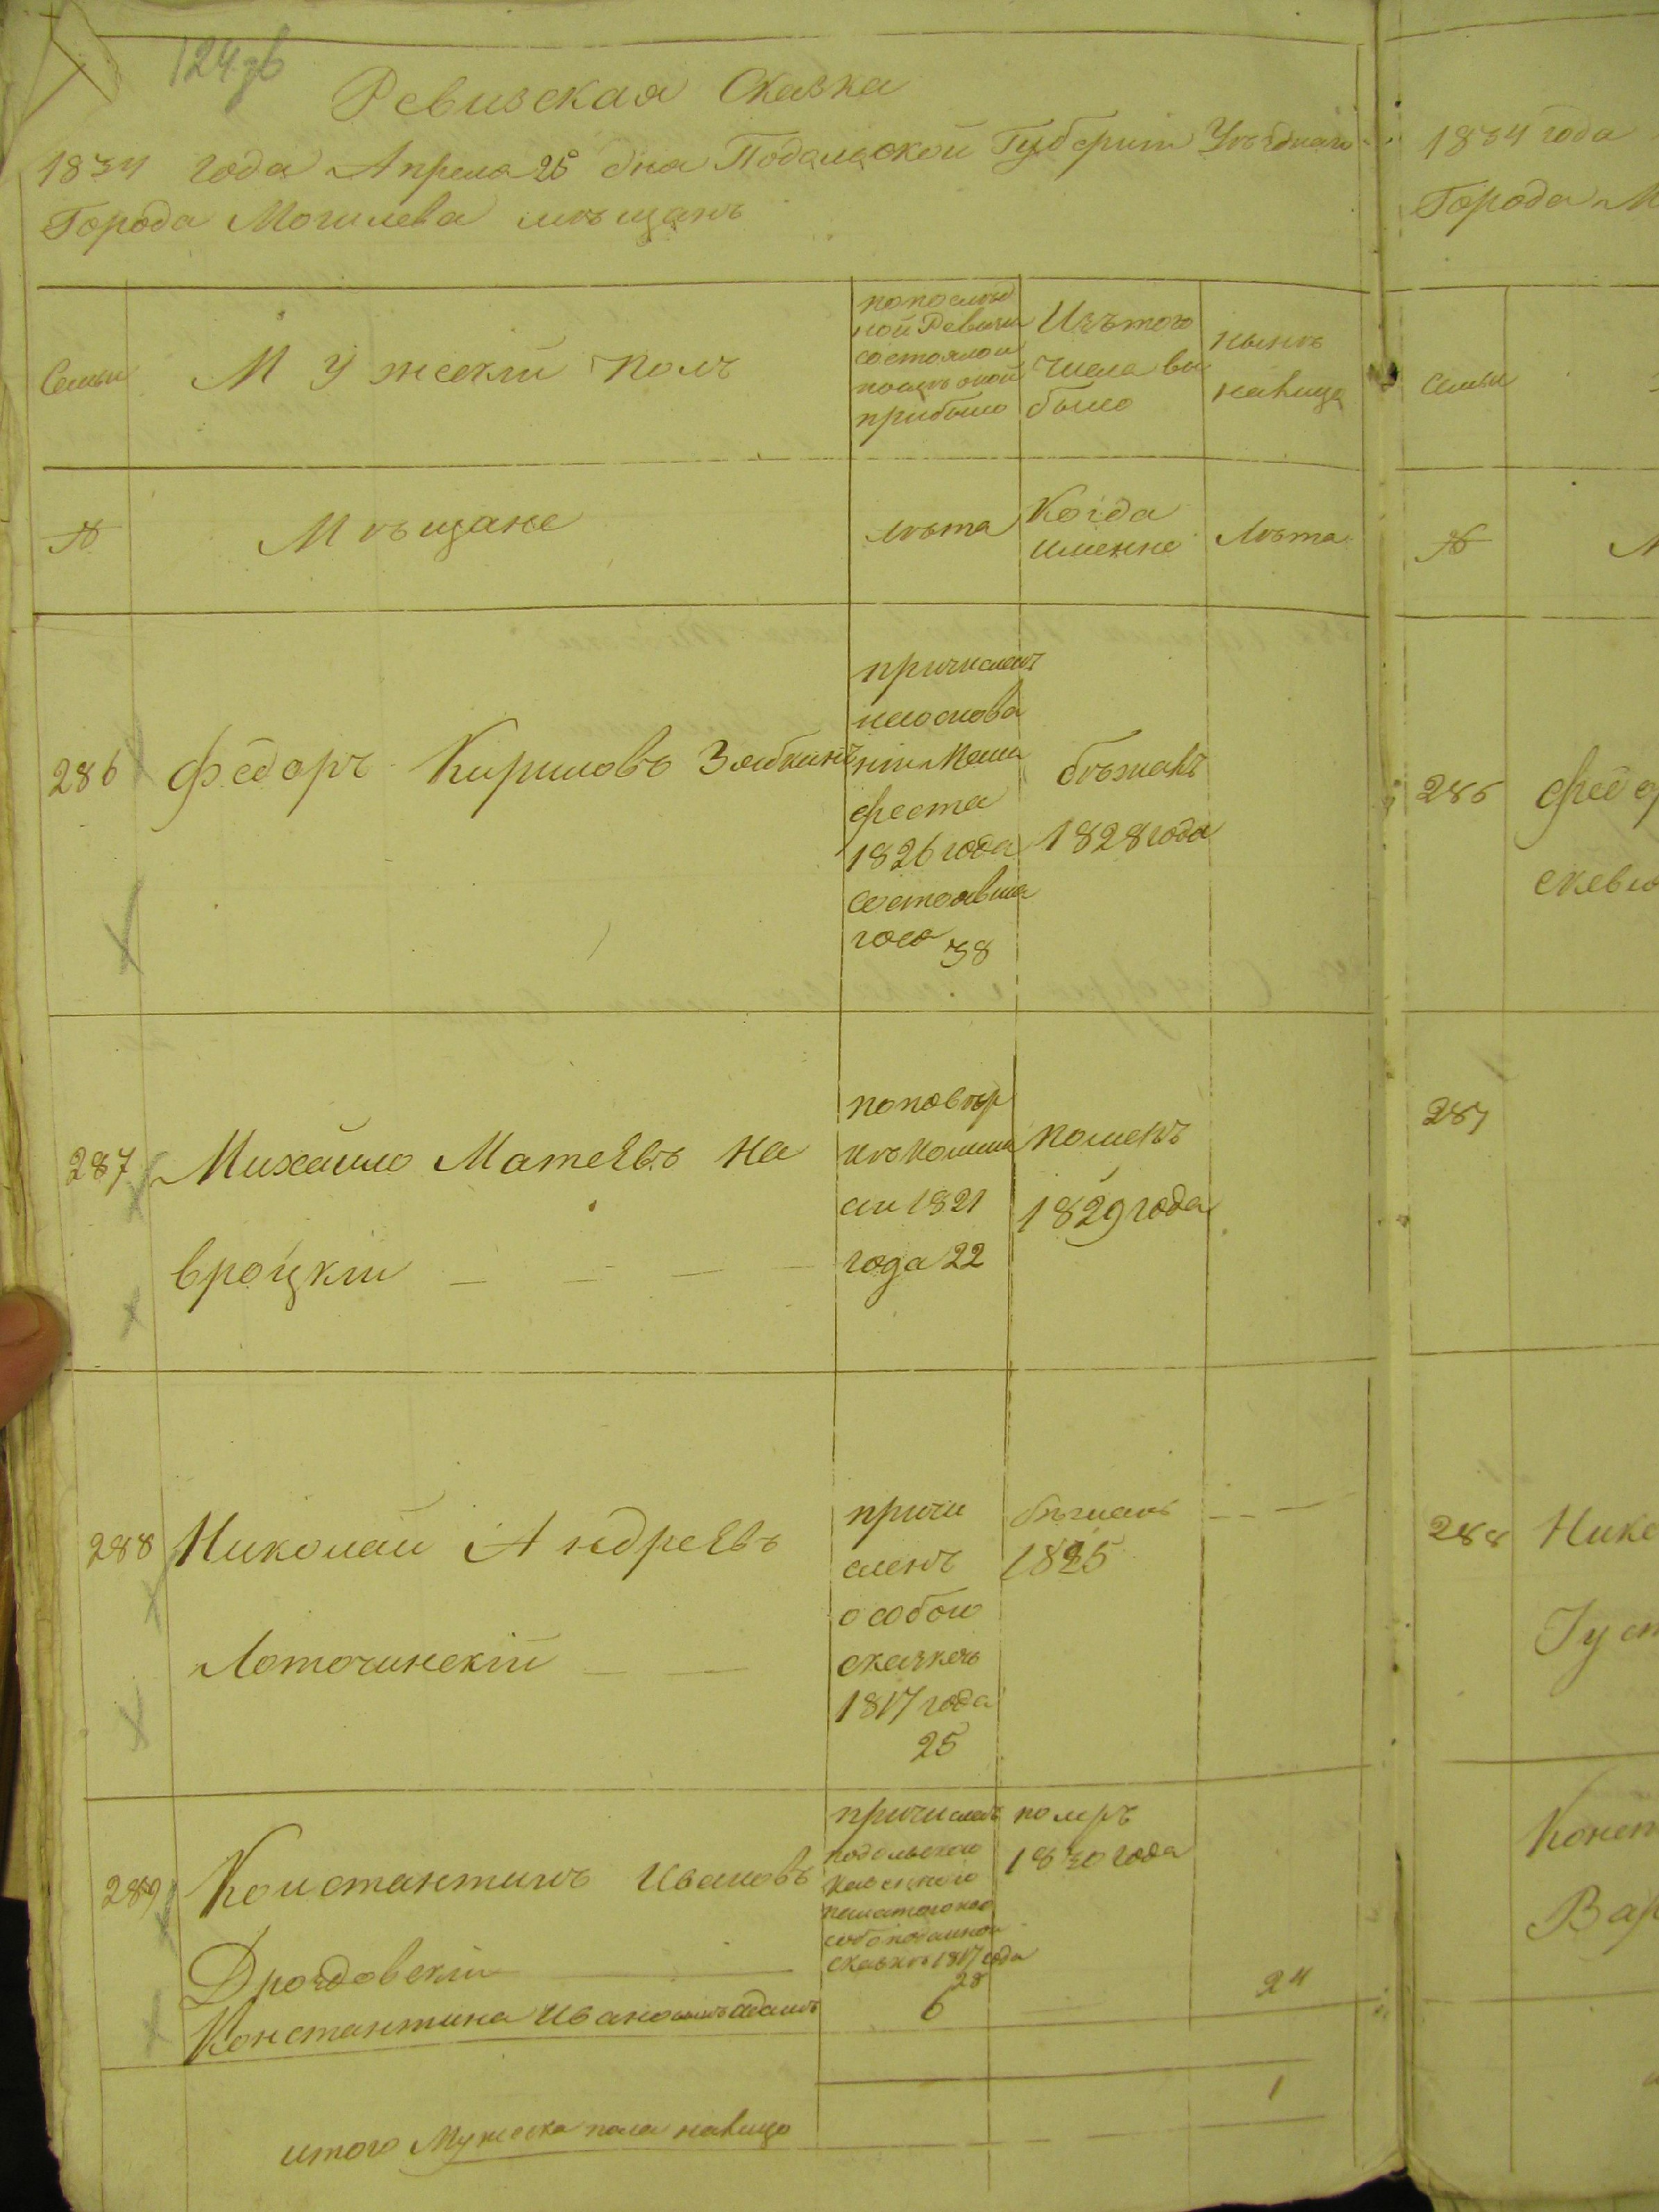 124
Ревизская Сказка
1834 года Апреля 25 дня Подольской Губернии Уѣзднаго
Города Могилева мѣщанъ
Семьи
Мужескій полъ
попослѣд
ной Ревизіи
состояло и
послѣ оной
прибыло
Изъ того
числа вы
было
нынѣ
налицо
№
Мѣщане
лѣта
Когда
именно
Лѣта
286
Федоръ Кириловъ
причисленъ
на основа
ніи Мани
феста
1826 года
состоявша
гося 38
бѣжалъ
1828 года
287
Михайло Матеявъ На
вроцкій
по повѣр
кѣ комми
сіи 1821
года 22
померъ
1829 года
288
Николай Андреявъ
Лоточинскій
причи
сленъ
особою
сказкою
1817 года
25
бѣжалъ
1825
289
Константинъ Ивановъ
Дроздовскій
причисленъ
подольскою
казенною
палатою
сказкѣ 1817 года
28
помръ
1830 года
Константина Иванова сынъ Адамъ
6
24
1
итого Мужеска пола налицо
1834 года
Города М
Семьи
№
М
286
Федо
287
288
Нико
Густ
Конст
Вар